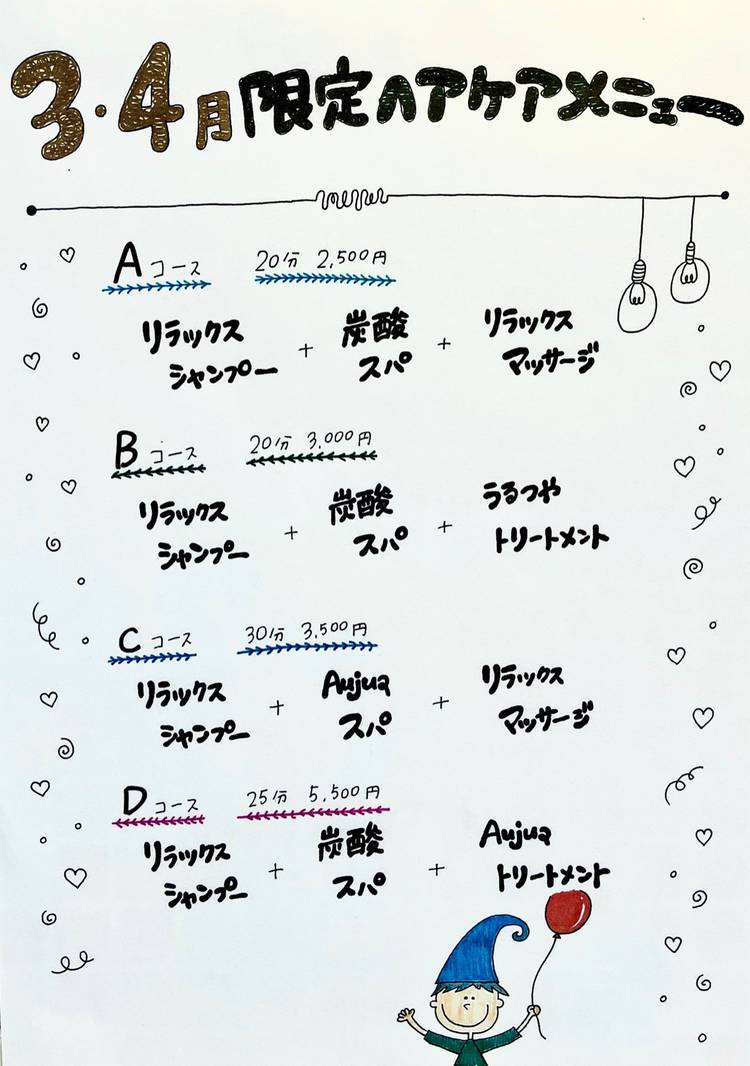 3・4月限定ヘアケアメニュー
Aコース 20分 2,500円
リラックスシャンプー + 炭酸スパ + リラックスマッサージ
Bコース 20分 3,000円
リラックスシャンプー + 炭酸スパ + うるつやトリートメント
Cコース 30分 3,500円
リラックスシャンプー + Aujuaスパ + リラックスマッサージ
Dコース 25分 5,500円
リラックスシャンプー + 炭酸スパ + Aujuaトリートメント